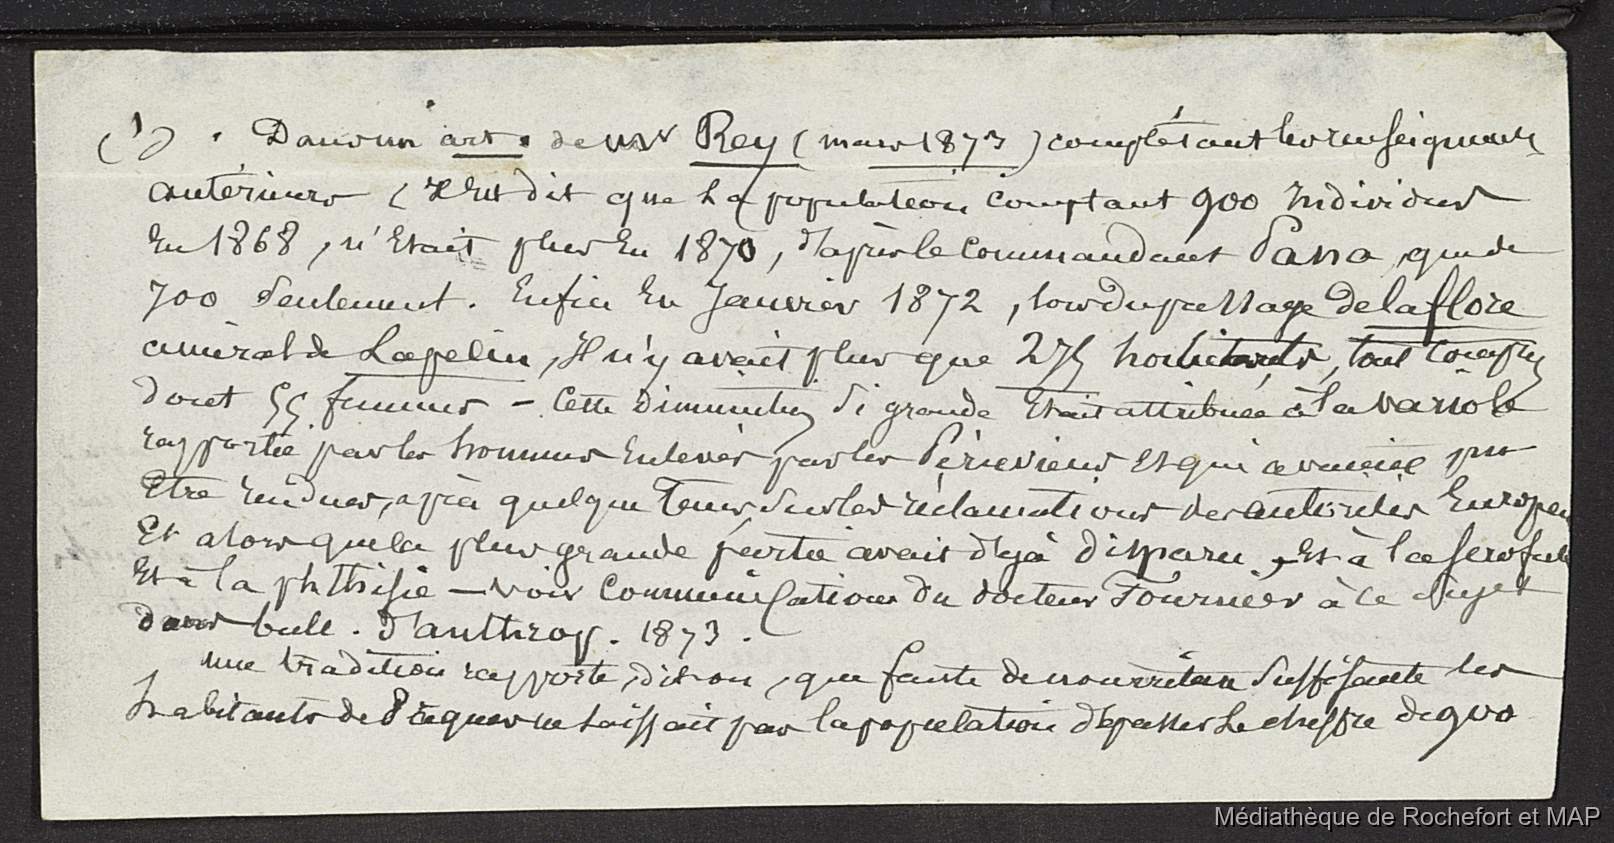 (1) . Dans un art. de Mr Rey (mars 1873) complétant les renseignements
antérieurs (il est dit que la population comptant 900 individus
en 1868, n'était plus en 1870, d'après le commandant Pana, que de
700 seulement. Enfin en Janvier 1872, lors du passage de la flore
amiral de Lapelin, il n'y avait plus que 275 habitants, tout compris
dont 55 femmes – cette diminution si grande était attribuée à la variole
rapportée par les hommes enlevés par les Péruviens et qui avaient pu
être rendus, après quelque tems sur les réclamations des autorités Europeen
et alors que la plus grande partie avait déjà disparu, et à la scrofule
et à la phthisie – voir communication du docteur Fournier à ce sujet
dans bull. d'anthrop. 1873.
une tradition rapporte, dit-on, que faute de nourriture suffisante les
habitants de Pâques ne laissait pas la population dépasser le chiffre de 900
Médiathèque de Rochefort et MAP